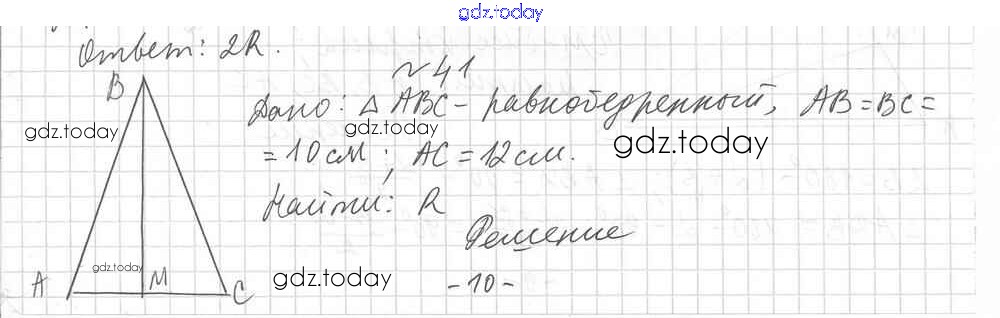 gdz.today
Ответ: 2R.
№ 41
B
Дано: △ ABC - равнобедренный, AB = BC =
gdz.today gdz.today gdz.today
= 10 см ; AC = 12 см.
Найти: R
Решение
gdz.today
A M C gdz.today - 10 -